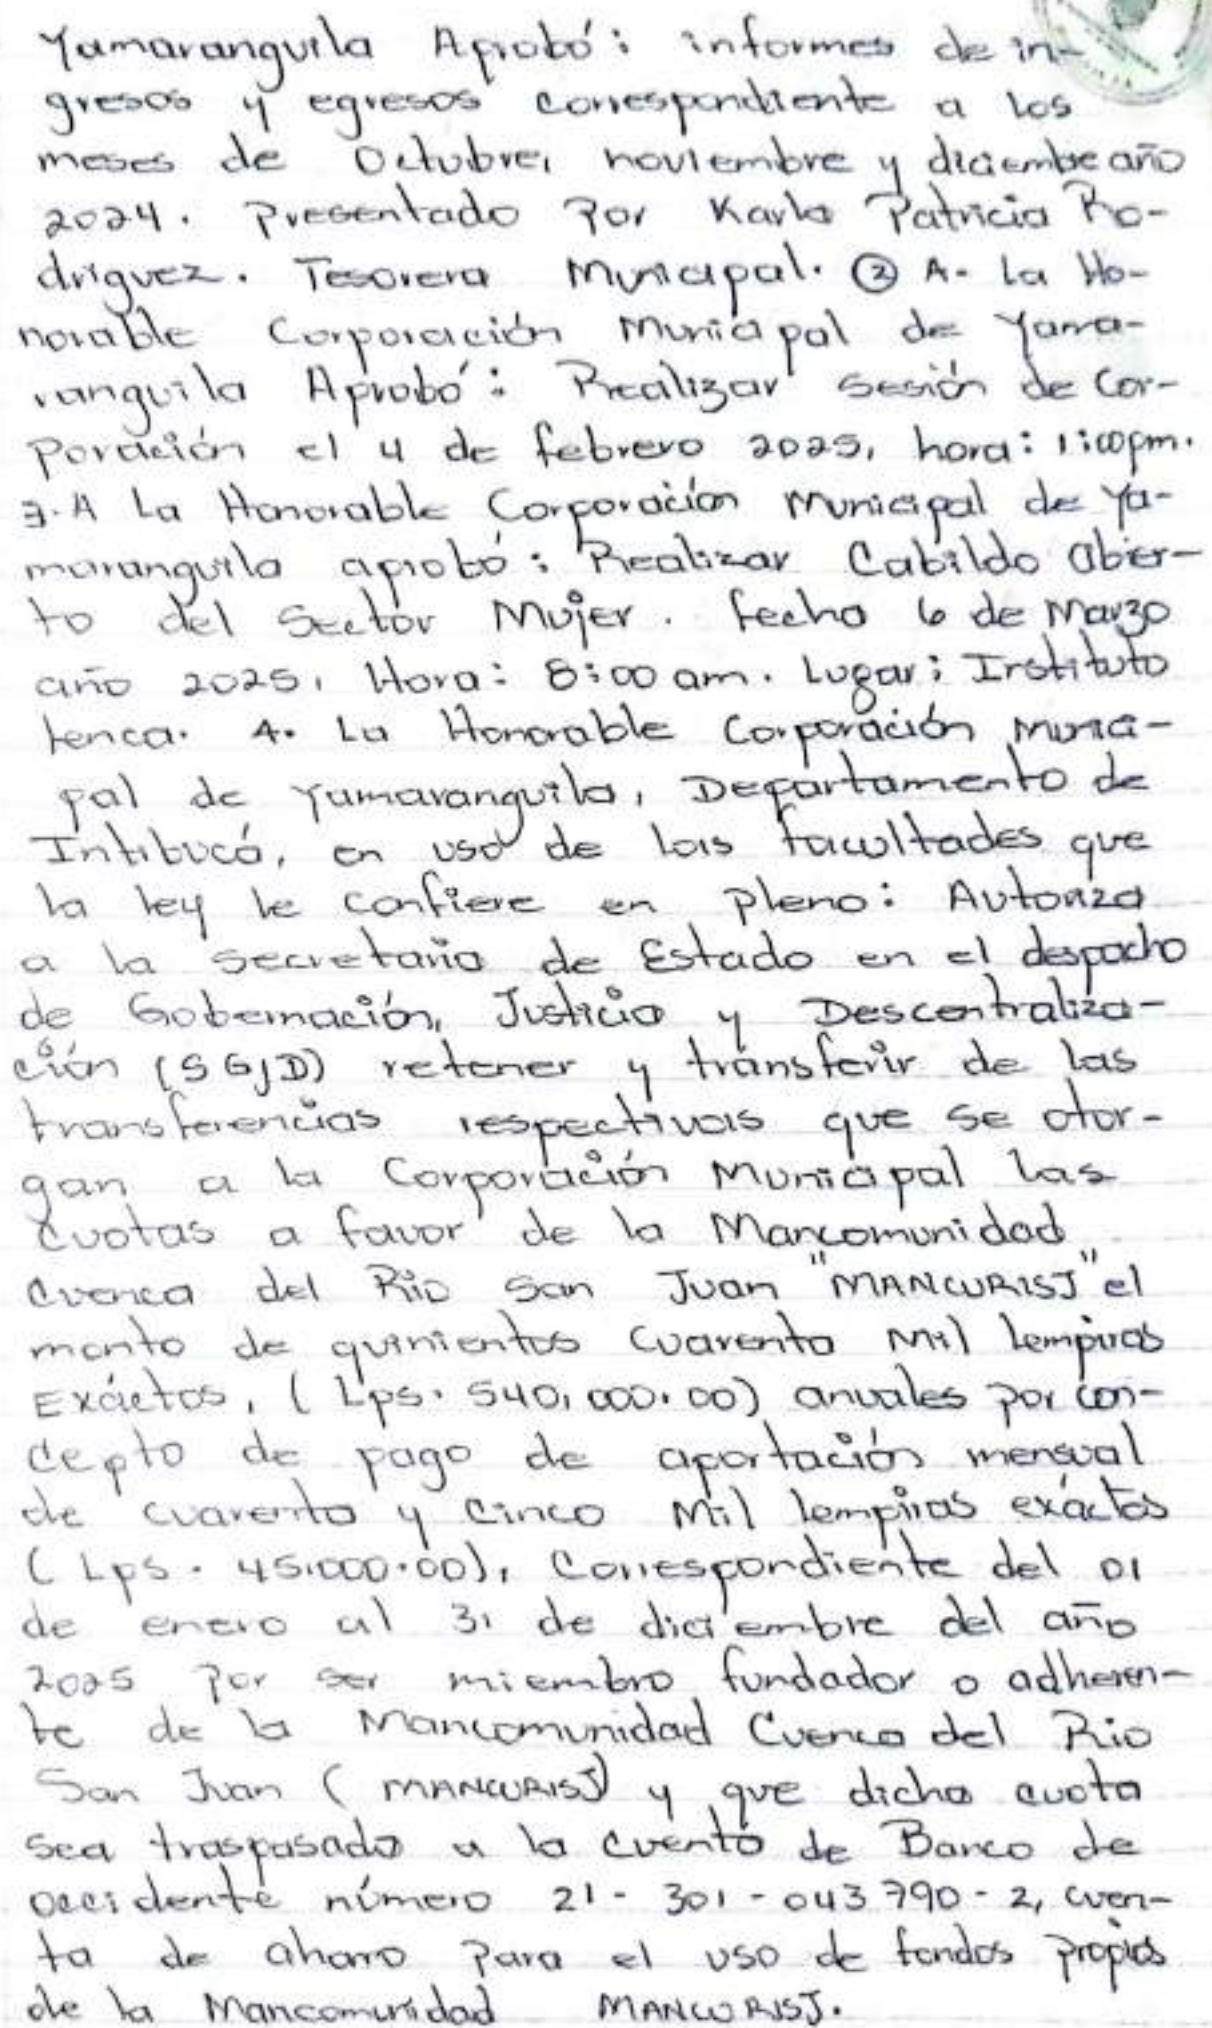 Yamaranguila Aprobó: informes de in-
gresos y egresos correspondiente a los
meses de Octubre, noviembre y diciembre año
2024. Presentado Por Karla Patricia Ro-
driguez. Tesorera Municipal. ② A- La Ho-
norable Corporación Municipal de Yama-
ranguila Aprobó: Realizar sesión de Cor-
poración el 4 de febrero 2025, hora: 1:00pm.
3.A La Honorable Corporación Municipal de Ya-
maranguila aprobó: Realizar Cabildo aber-
to del Sector Mujer. fecha 6 de Marzo
año 2025, Hora: 8:00 am. Lugar: Instituto
lenca. 4. La Honorable Corporación Munici-
pal de Yamaranguila, Departamento de
Intibucá, en uso de las facultades que
la ley le confiere en pleno: Autoriza
a la secretaria de Estado en el despacho
de Gobernación, Justicia y Descentraliza-
ción (SGJD) retener y transferir de las
transferencias respectivas que se otor-
gan a la Corporación Municipal las
cuotas a favor de la Mancomunidad
Cuenca del Rio San Juan "MANCURISJ" el
monto de quinientos cuarenta Mil lempiras
Exáctos, (Lps. 540,000.00) anuales por con-
cepto de pago de aportación mensual
de cuarenta y Cinco Mil lempiras exáctos
(Lps. 45,000.00), Correspondiente del 01
de enero al 31 de diciembre del año
2025 Por ser miembro fundador o adheren-
te de la Mancomunidad Cuenca del Rio
San Juan (MANCURISJ) y que dicha cuota
sea traspasado a la cuenta de Banco de
occidente número 21-301-043790-2, cuen-
ta de ahorro Para el uso de fondos propios
de la Mancomunidad MANCURISJ.